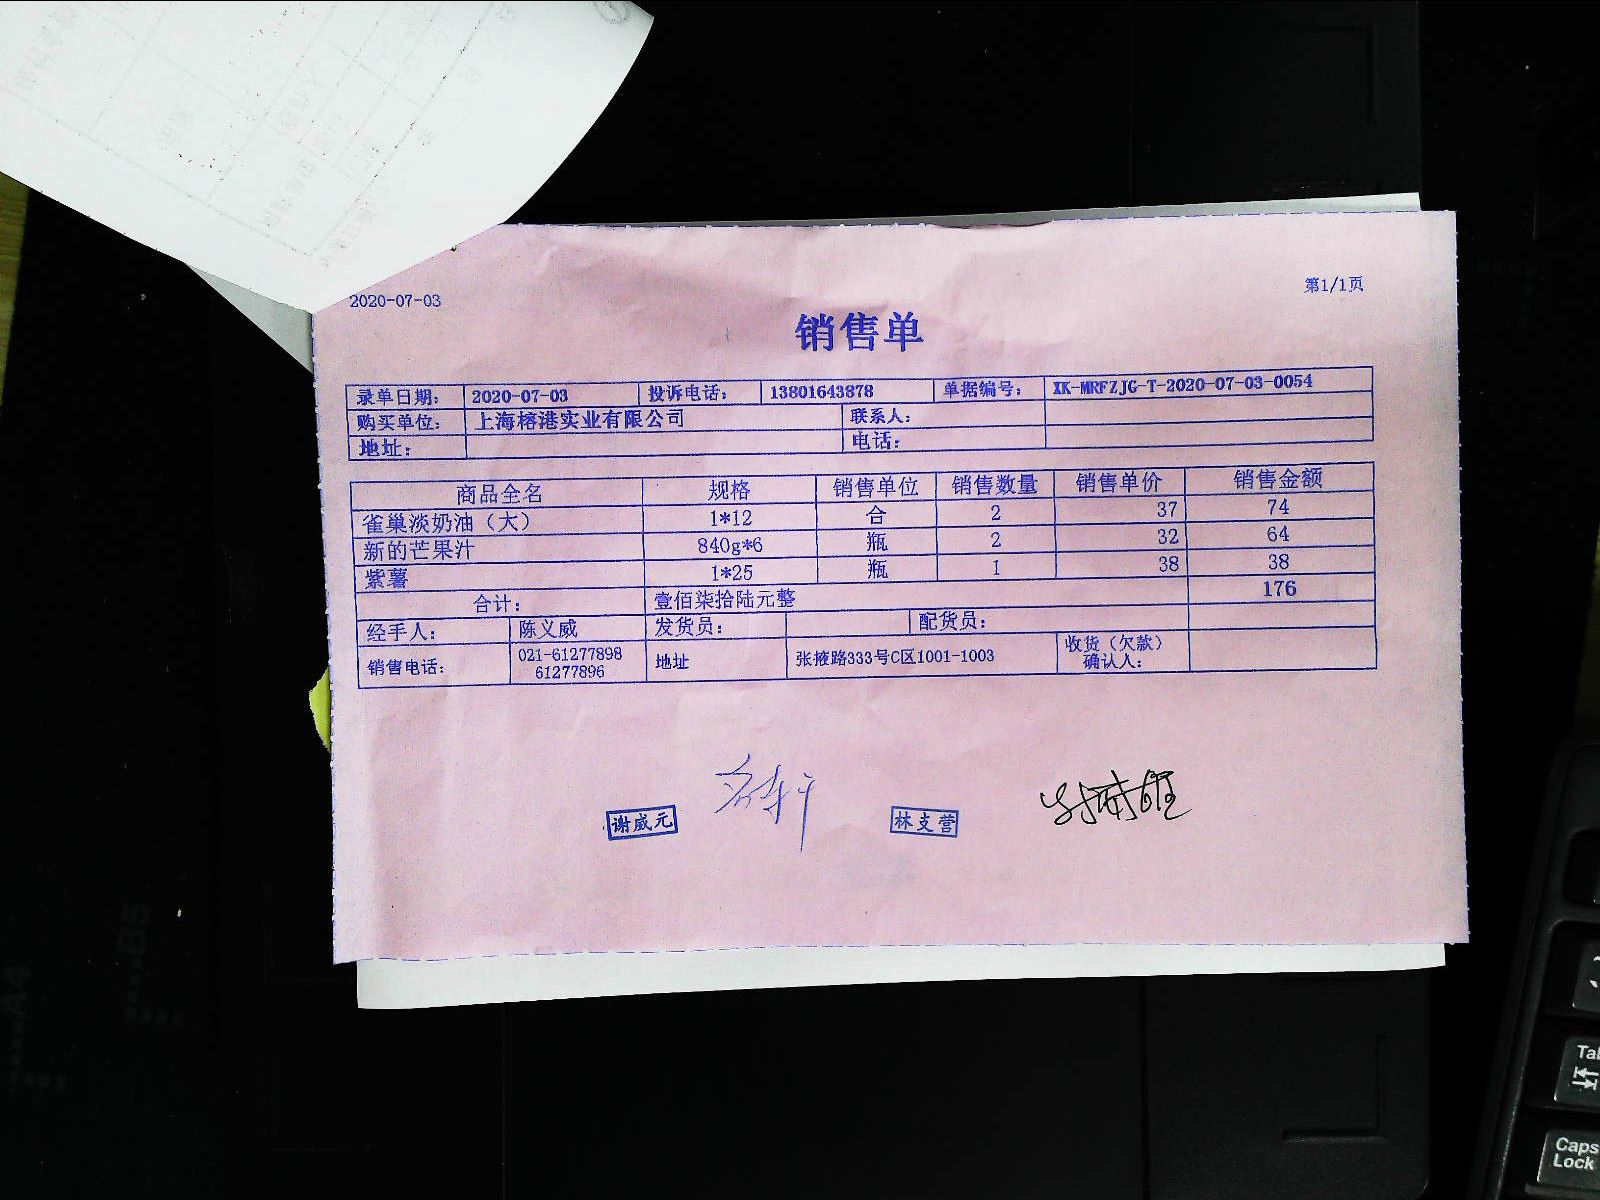 2020-07-03
第1/1页
销售单
录单日期: 2020-07-03 投诉电话: 13801643878 单据编号: XK-MRFZJG-T-2020-07-03-0054
购买单位: 上海榕港实业有限公司 联系人:
地址: 电话:
商品全名 规格 销售单位 销售数量 销售单价 销售金额
雀巢淡奶油（大） 1*12 合 2 37 74
新的芒果汁 840g*6 瓶 2 32 64
紫薯 1*25 瓶 1 38 38
合计: 壹佰柒拾陆元整 176
经手人: 陈义威 发货员: 配货员:
销售电话: 021-61277898 61277896 地址 张掖路333号C区1001-1003 收货（欠款）确认人:
谢威元 林支营
A4
B5
Tab
Caps
Lock